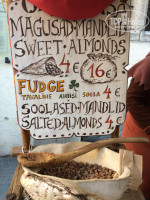 MAGUSAD MANDLID
SWEET ALMONDS
4 € 16 €
FUDGE
4 €
SOOLASED MANDLID
SALTED ALMONDS 4 €